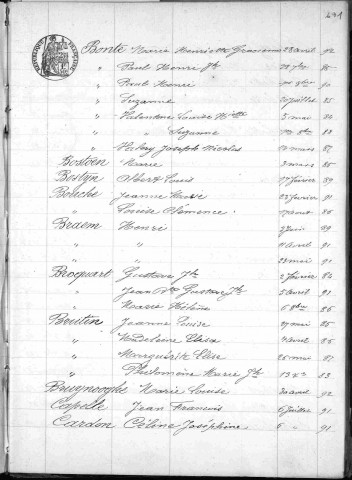 491
Bonte Marie Henriette 28 avril 92
" Paul Henri Jh 88
" Paul Henri 90
" Suzanne 20 juillet 85
" Valentine Louise 3 mai 84
" Suzanne 8bre 83
" Joseph Nicolas mars 87
Bostoen Marie mars 85
Bostyn Albert Louis 17 février 89
Bouche Jeanne Marie 23 février 91
" Louise Clémence août 86
Braem Henri 2 juin 89
" " 11 avril 91
" " 22 mai 91
Brocquart Gustave Jh 2 février 84
" Jean Bte Gustave Jh 5 avril 91
" Marie Hélène 6 8bre 86
Boutin Jeanne Louise mai 85
" Madeleine Elisa avril 86
" Marguerite Elise 26 mai 87
" Philomène Marie Jh 13 Xbre 83
Bruynooghe Marie Louise 30 avril 92
Capelle Jean François 6 juillet 91
Cardon Céline Joséphine 6 " 91